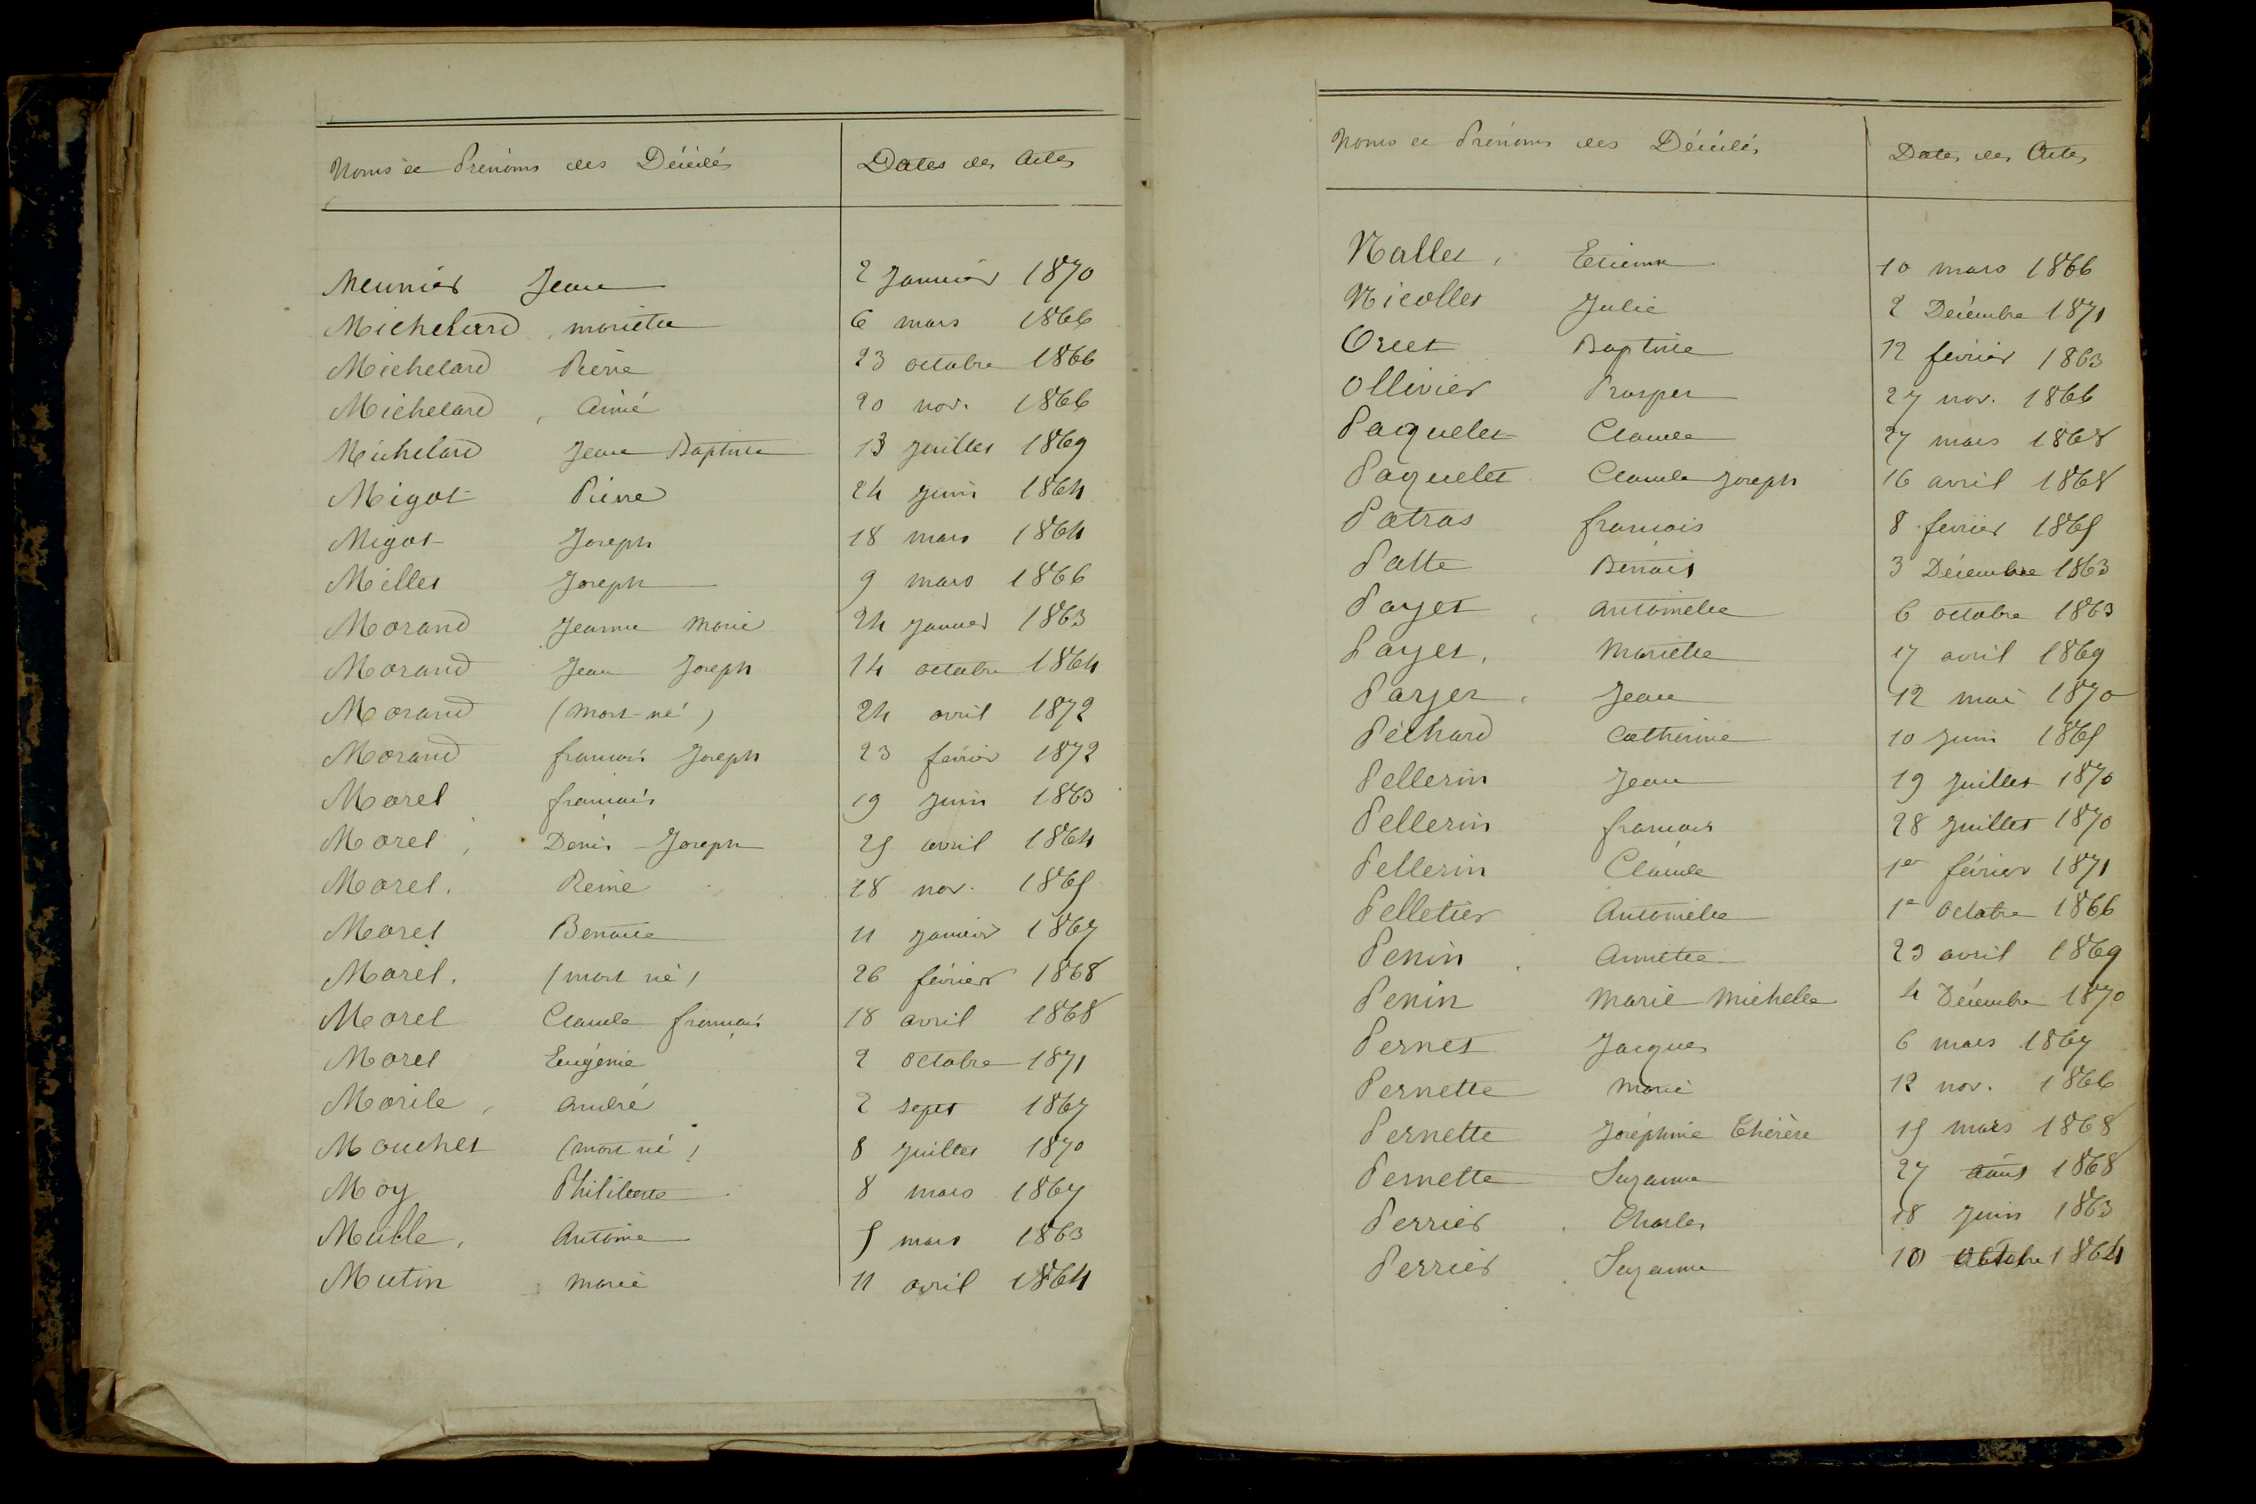 Noms et Prénoms des Décédés Dates des Actes
Meunier Jean 2 Janvier 1870
Michelard, mariette 6 mars 1866
Michelard Pierre 23 octobre 1866
Michelard, Aimé 20 nov. 1866
Michelard Jean Baptiste 13 juillet 1869
Migot Pierre 24 juin 1864
Migot Joseph 18 mars 1864
Millet Joseph 9 mars 1866
Morand Jeanne Marie 24 janvier 1863
Morand Jean Joseph 14 octobre 1864
Morand (mort-né) 24 avril 1872
Morand françois Joseph 23 février 1872
Morel françois 19 juin 1863
Morel, Denis-Joseph 25 avril 1864
Morel. Reine 18 nov. 1865
Morel Benoite 11 janvier 1867
Morel. (mort né) 26 février 1868
Morel Claude françois 18 avril 1868
Morel Eugénie 2 octobre 1871
Morile, André 2 sept 1867
Mouchet (mort né) 8 juillet 1870
Moy Philiberte 8 mars 1867
Muble, Antoine 5 mars 1863
Mutin marie 11 avril 1864
Noms et Prénoms des Décédés Dates des Actes
Nallet, Etienne 10 mars 1866
Nicollet Julie 2 Décembre 1871
Orcet Baptiste 12 février 1863
Ollivier Prosper 27 nov. 1866
Paquelet Claude 27 mars 1868
Paquelet Claude Joseph 16 avril 1868
Patras françois 8 février 1865
Patte Benoit 3 Décembre 1863
Payet, Antoinette 6 octobre 1863
Payet, Mariette 17 avril 1869
Payet, Jean 12 mai 1870
Péchard Catherine 10 juin 1865
Pellerin Jean 19 juillet 1870
Pellerin françois 28 juillet 1870
Pellerin Claude 1er février 1871
Pelletier Antoinette 1er octobre 1866
Penin Annette 23 avril 1869
Penin Marie Michelle 4 Décembre 1870
Pernet Jacques 6 mars 1867
Pernette Marie 12 nov. 1866
Pernette Joséphine Thérèse 15 mars 1868
Pernette Suzanne 27 août 1868
Perrier Charles 18 juin 1863
Perrier Suzanne 10 octobre 1864